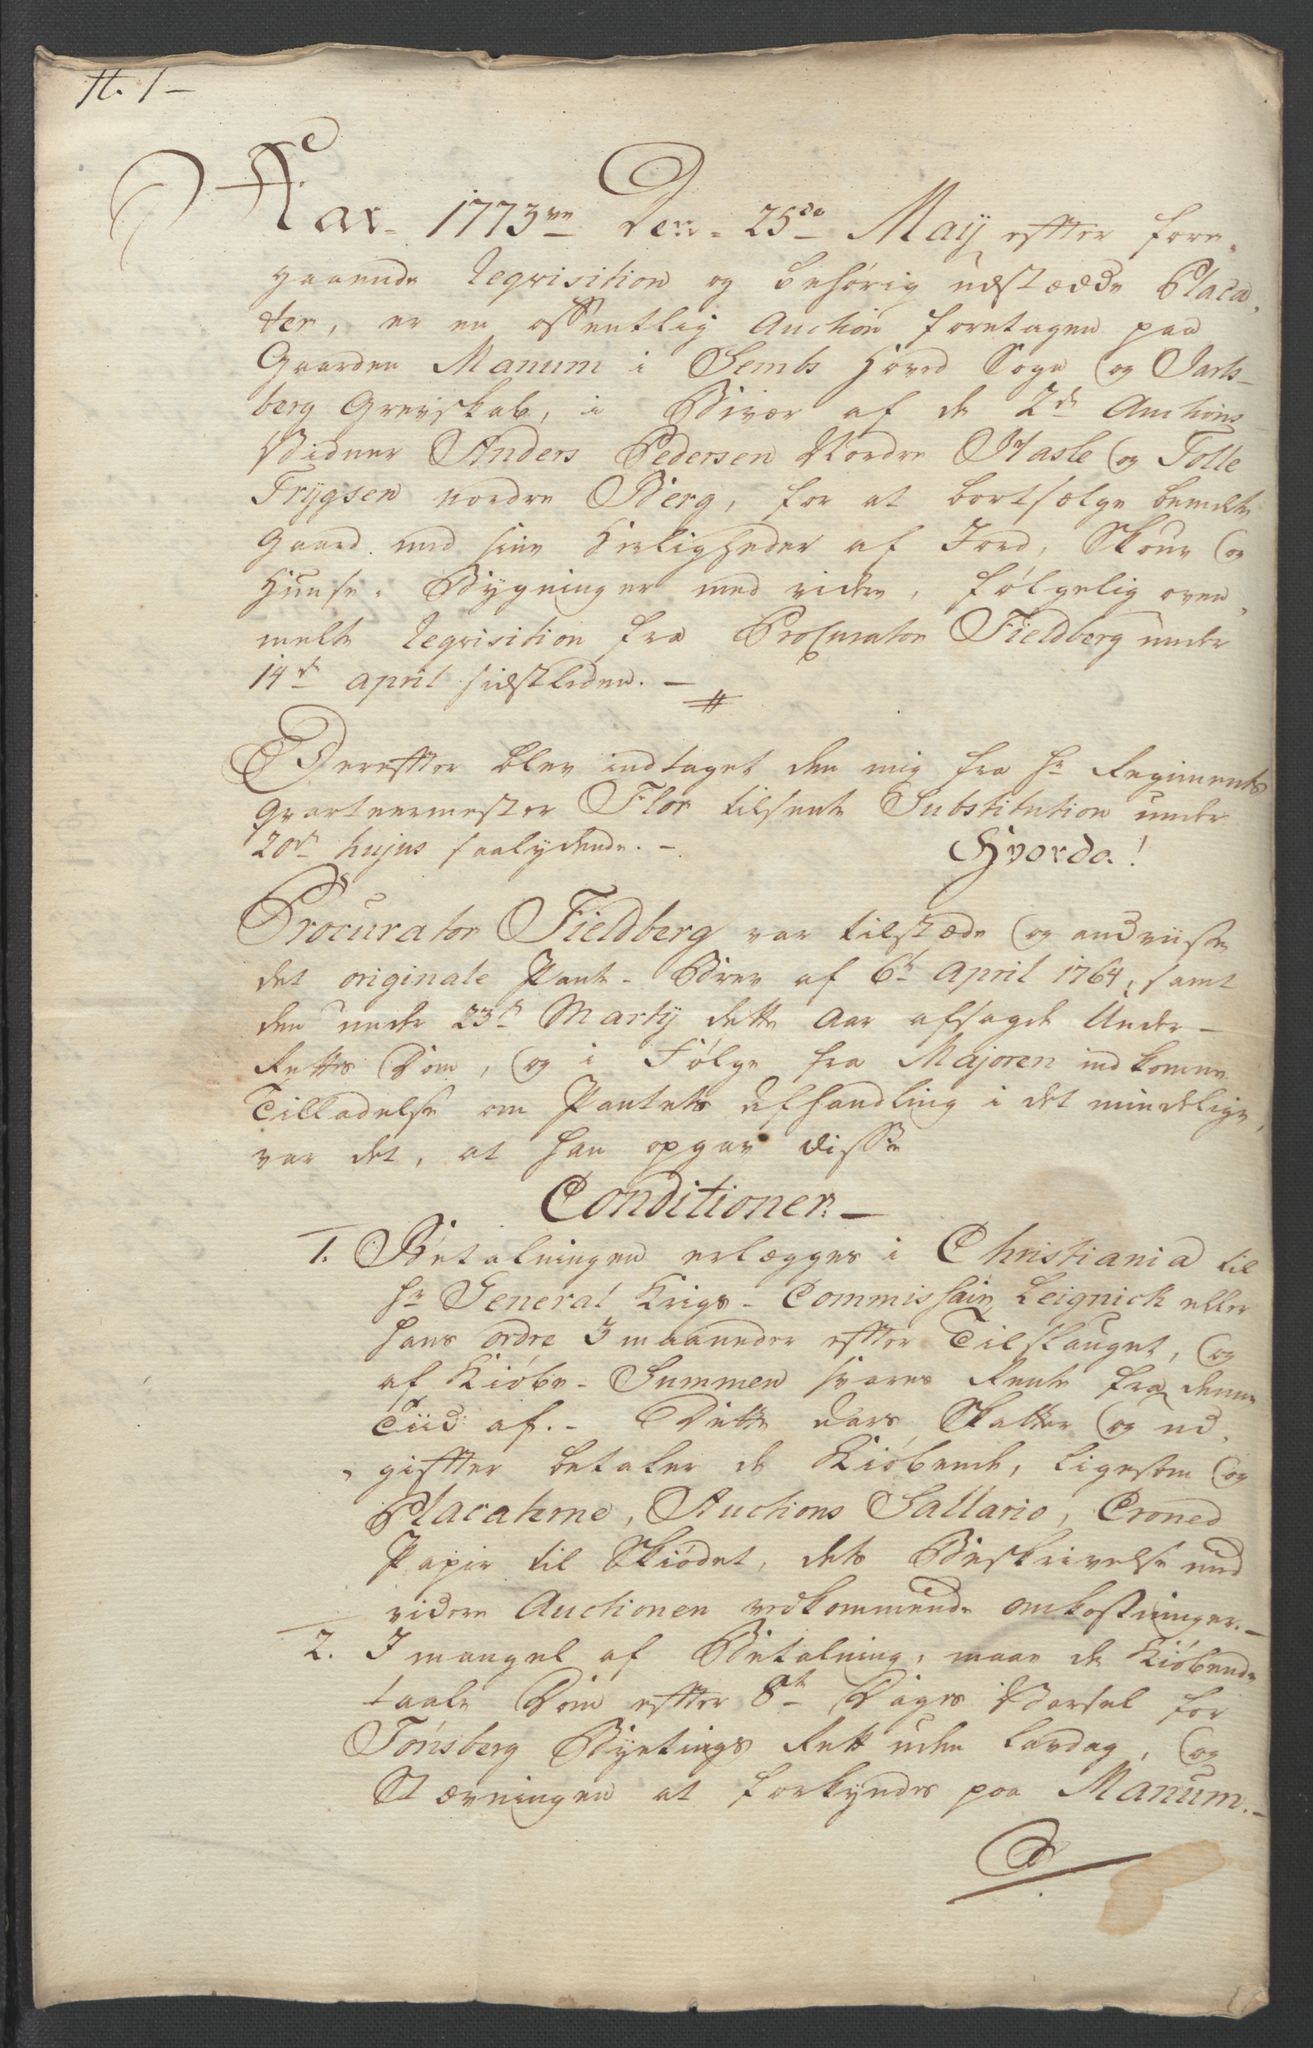 N. 1 -
Aar 1773ve Den 25de Maij effter fore-
gaaende Reqvisition og behörig udstædde Placa-
ter, er en offentlig Auction foretagen paa
Gaarden Manum i Sembs Hoved Sogn og Jarls-
berg Grevskab, i Bivær af de 2de Auctions
Vidner Anders Pedersen Nordre Hasle og Tolle
Trÿgsen nordre Berg, for at bortsælge bemelte
Gaard med sine Herligheder af Jord, Skoug og
Huuse-Bygninger med videre, følgelig oven-
melte Reqvisition fra Procurator Fieldberg under
14de april sidstleden. -
Dereffter blev indtaget den mig fra Hr Regiments
qvarteermester Flor tilsente Substitution under
20de hujus saalydende. - Hvorda!
Procurator Fieldberg var tilstæde og andviiste
det originale Pant-Brev af 6te April 1764, samt
den under 23de Martÿ dette Aar afsagde Under-
Retts Dom, og i Fölge fra Majoren indkomne
Tilladelse om Pantets Afhandling i det mindelige,
var det, at han opgav disse
Conditioner. -
1. Betalningen erlægges i Christiania til
Hr General Krigs-Commissair Leignick eller
hans ordre 3 maaneder effter Tilslauget, og
af Kiöbe-Summen svares Rente fra denne
Tiid af. - Dette Aars Skatter og ud-
giffter betaler de Kiöbende, ligesom og
Placaterne, Auctions Sallario, Croned
Papir til Skiödet, dets Beskrivelse med
videre Auctionen vedkommende omkostninger. -
2. I mangel af Betalning, maae de Kiöbende
taale Dom effter 8te Dages Varsel for
Tönsberg Byetings Rett uden Lavdag, og
Stævningen at forkyndes paa Manum. -